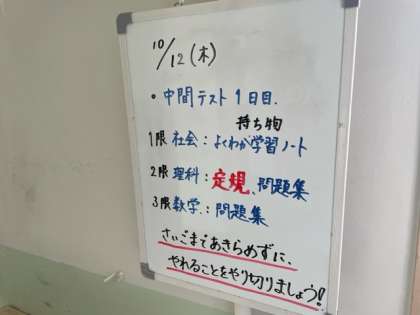 10/12(木)
・中間テスト1日目.
持ち物
1限 社会:よくわか学習ノート
2限 理科:定規、問題集
3限 数学:問題集
さいごまであきらめずに、
やれることをやり切りましょう!